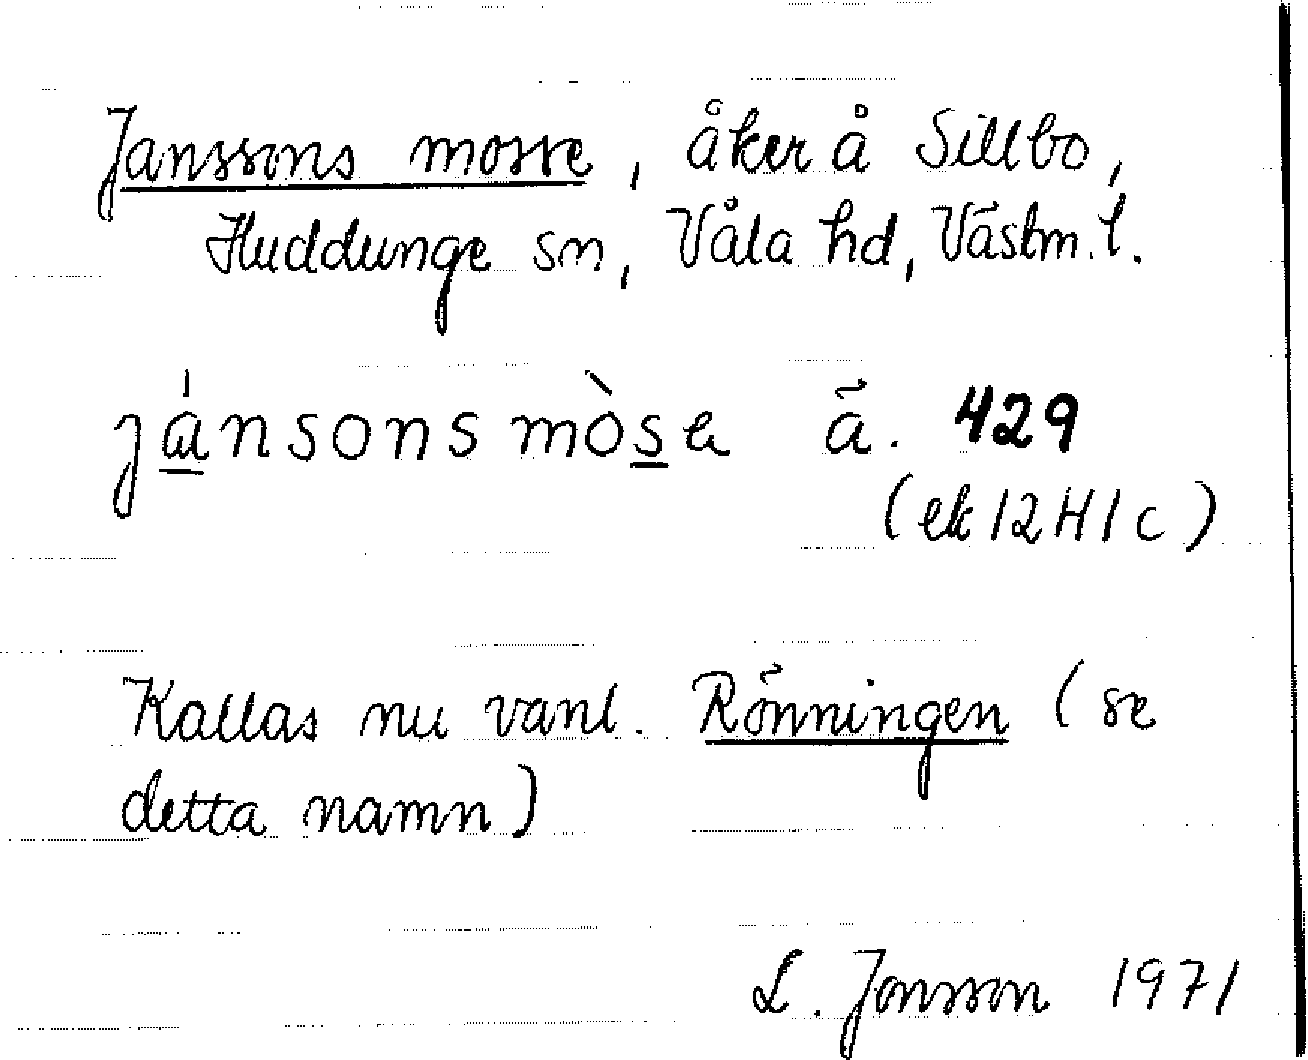 Janssons mosse, åker å Sillbo,
Huddunge sn, Våla hd, Västm. l.
jánsons mòsa ä. 429
(ek 12 H 1 c)
Kallas nu vanl. Rönningen (se
detta namn)
L. Jonsson 1971